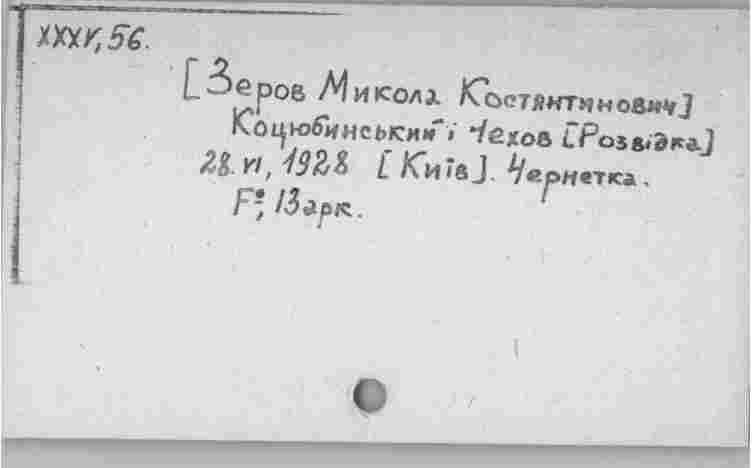 XXXV, 56.
[Зеров Микола Костянтинович]
Коцюбинський і Чехов [Розвідка]
28.VI, 1928 [Київ]. Чернетка.
F°, 13 арк.